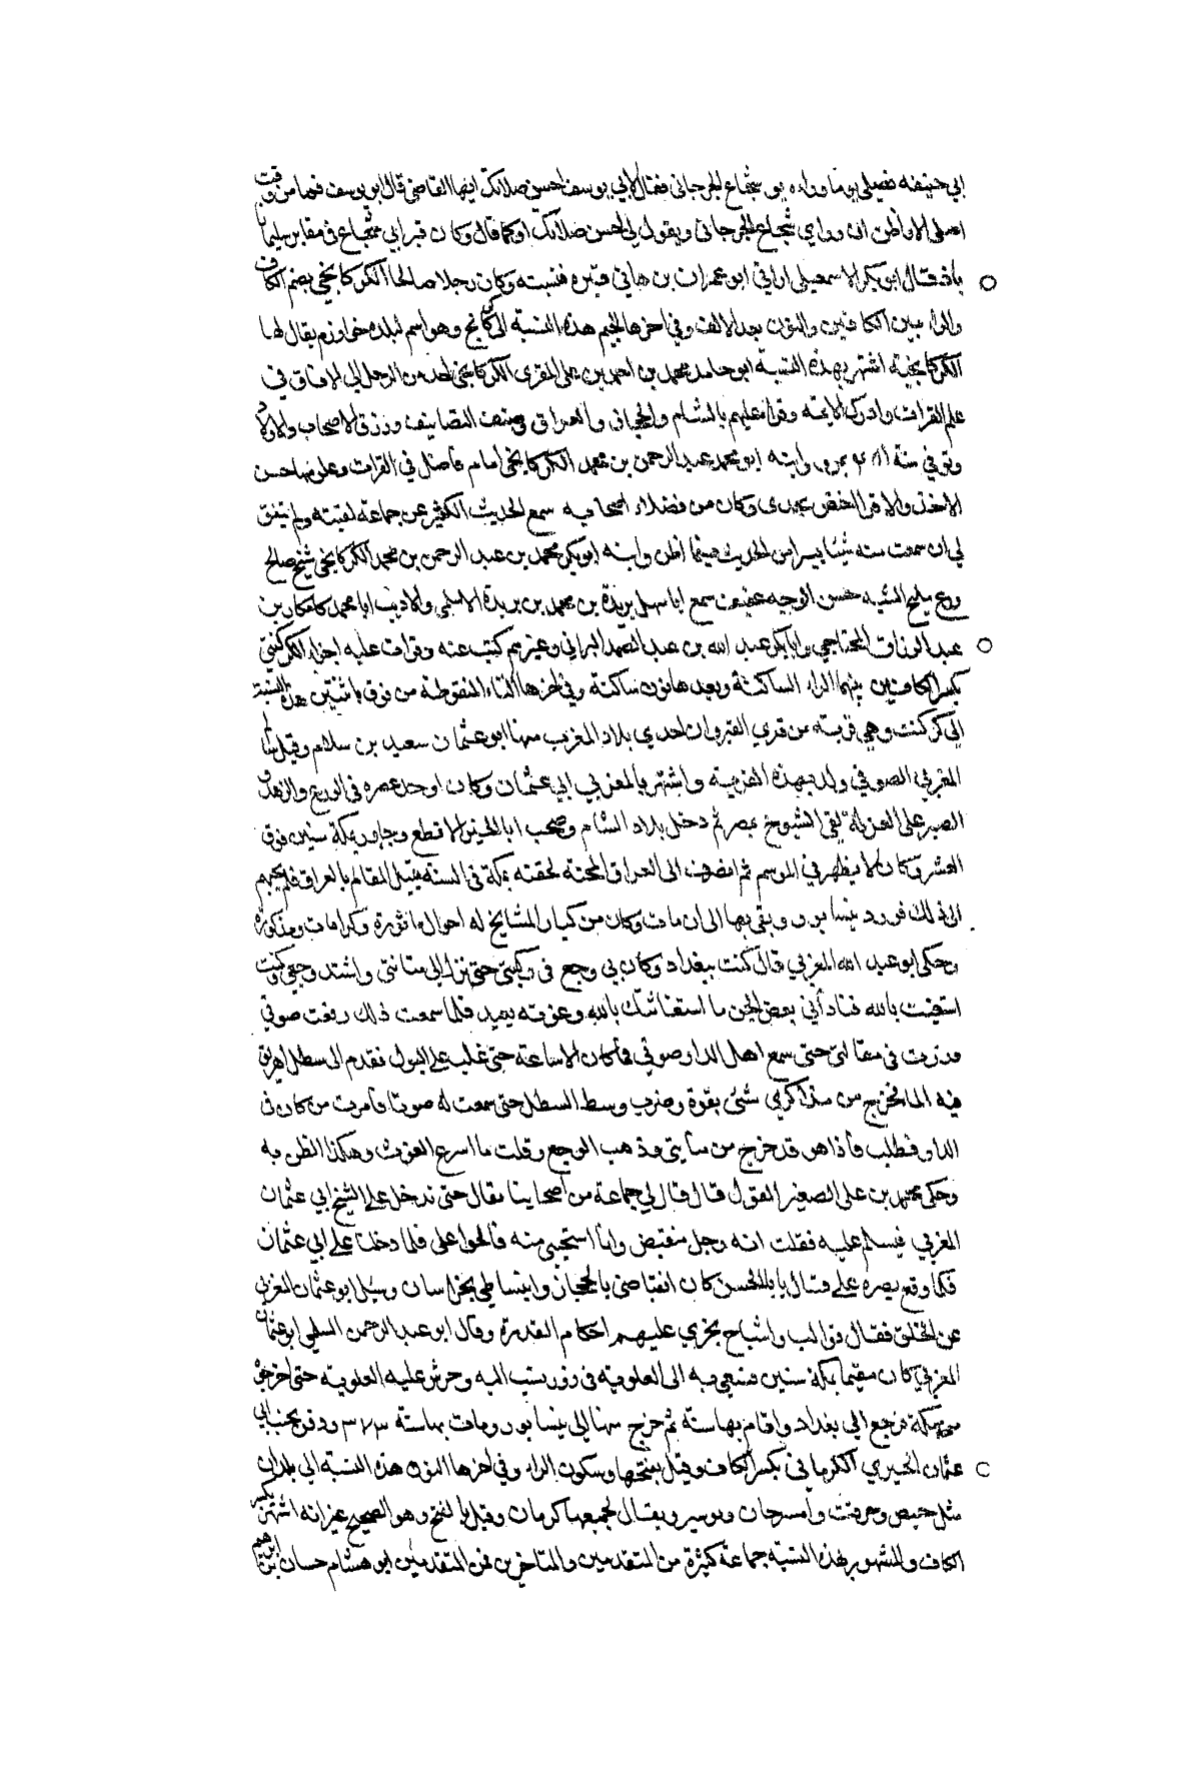 ابي حنيفه فصلى يوما وراه ابو شجاع الجرجاني فقال لابي يوسف احسن صلاتك ايها القاضي قال ابو يوسف فما من وقت
اصلي الا واظن ان وراي شجاع الجرجاني ويقول لي احسن صلاتك او كما قال وكان قبر ابي شجاع في مقابر سليمان
باذ قال ابو بكر الاسمعيلي اراني ابو عمران بن هاني قبره فنسبته وكان رجلا صالحا الكركانجي بضم الكاف
والراء بين الكافين والنون بعد الالف وفي اخرها الجيم هذه النسبة الى كركانج وهو اسم لبلده خوارزم يقال لها
الكركانجيه اشتهر بهذه النسبة ابو حامد محمد بن احمد بن علي المقري الكركانجي احد من الرحل الى الافاق في
علم القرات وادرك الايمه وقرا عليهم بالشام والحجاز والعراق وصنف التصانيف ورزق الاصحاب والاولاد
وتوفي سنة ٤٨١ بمرو وابنه ابو محمد عبد الرحمن بن محمد الكركانجي امام فاضل في القرات وعلومها حسن
الاخذ والاقرا وكان من فضلاء اصحابه سمع الحديث الكثير عن جماعة لقيته ولم يتفق
لي ان سمعت منه شيئا يسيرا من الحديث فيما اظن وابنه ابو بكر محمد بن عبد الرحمن بن محمد الكركانجي شيخ صالح
ورع مليح الشيبه حسن الوجه عفيف سمع ابا سهل بريدة بن محمد بن بريدة الاسلمي والاديب ابا محمد كامكار بن
عبد الرزاق المحتاجي وابا بكر عبد الله بن عبد الصمد البراني وغيرهم كتبت عنه وقرات عليه اجزاء الكركنتي
بكسر الكافين بينهما الراء الساكنة وبعدها نون ساكنة وفي اخرها التاء المنقوطة من فوق باثنتين هذه النسبة
الى كركنت وهي قرية من قرى القيروان احدى بلاد المغرب منها ابو عثمان سعيد بن سلام وقيل سالم
المغربي الصوفي ولد بهذه القرية واشتهر بالمغربي ابي عثمان وكان اوحد عصره في الورع والزهد و
الصبر على العزلة لقي الشيوخ بمصر ثم دخل بلاد الشام وصحب ابا الخير الاقطع وجاور بمكة سنين فوق
العشر وكان لا يظهر في الموسم ثم انصرف الى العراق لمحنة لحقته بمكة في السنه فسئل المقام بالعراق فلم يجبهم
الى ذلك فورد نيسابور وبقي بها الى ان مات وكان من كبار المشايخ له احوال ماثورة وكرامات مذكورة
وحكى ابو عبد الله المغربي قال كنت ببغداد وكان بي وجع في ركبتي حتى نزل الى مثانتي واشتد وجعي وكنت
استغيث بالله فناداني بعض الجن ما استغاثتك بالله وغوثه بعيد فلما سمعت ذلك رفعت صوتي
وزدت في مقالتي حتى سمع اهل الدار صوتي فما كان الا ساعة حتى غلب علي البول فقدم الى سطل اهريق
فيه الما فخرج من مذاكري شئ بقوة وضرب وسط السطل حتى سمعت له صوتا فامرت من كان في
الدار فطلب فاذا هو قد خرج من مثانتي وذهب الوجع وقلت ما اسرع الغوث وهكذا الظن به
وحكى محمد بن علي الصغير القول قال قال لي جماعة من اصحابنا تعال حتى ندخل على الشيخ ابي عثمان
المغربي فنسلم عليه فقلت انه رجل منقبض وانا استحيي منه فالحوا علي فلما دخلت على ابي عثمان
فكما وقع بصره علي قال يا ابا الحسن كان انقباضي بالحجاز وانبساطي بخراسان وسئل ابو عثمان المغربي
عن الخلق فقال قوالب واشباح تجري عليهم احكام القدرة وقال ابو عبد الرحمن السلمي ابو عثمان
المغربي كان مقيما بمكة سنين فسعي به الى العلوية في زور نسب اليه وحرش عليه العلوية حتى اخرجوه
من مكة فرجع الى بغداد واقام بها سنة ثم خرج منها الى نيسابور ومات بها سنة ٣٧٣ ودفن بجنب ابي
عثمان الحيري الكرماني بكسر الكاف وقيل بفتحها وسكون الراء وفي اخرها النون هذه النسبة الى بلدان
مثل خبيص وجيرفت والسيرجان وبردسير ويقال لجميعها كرمان وقيل بالفتح وهو الصحيح غير انه اشتهر بكسر
الكاف والمشهور بهذه النسبة جماعة كثيرة من المتقدمين والمتاخرين فمن المتقدمين ابو هشام حسان بن ابراهيم